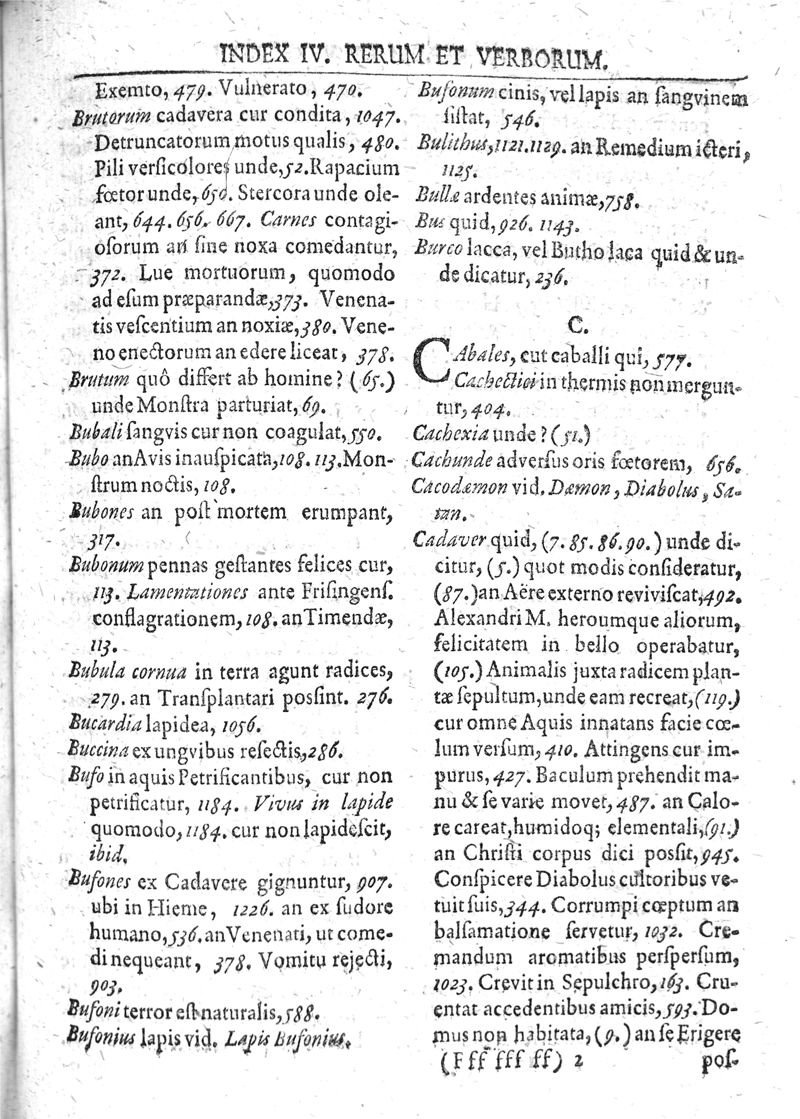 INDEX IV. RERUM ET VERBORUM.
Exemto, 479. Vulnerato, 470.
Brutorum cadavera cur condita, 1047.
Detruncatorum motus qualis, 480.
Pili versicolores unde, 52. Rapacium
fœtor unde, 650. Stercora unde ole-
ant, 644. 656. 667. Carnes contagi-
oſorum an ſine noxa comedantur,
372. Lue mortuorum, quomodo
ad eſum præparandæ, 373. Venena-
tis veſcentium an noxiæ, 380. Vene-
no enectorum an edere liceat, 378.
Brutum quô differt ab homine? (65.)
unde Monſtra parturiat, 69.
Bubali ſangvis cur non coagulat, 550.
Bubo an Avis inauſpicata, 108. 113. Mon-
ſtrum noctis, 108.
Bubones an poſt mortem erumpant,
317.
Bubonum pennas geſtantes felices cur,
113. Lamentationes ante Friſingenſ.
conflagrationem, 108. an Timendæ,
113.
Bubula cornua in terra agunt radices,
279. an Tranſplantari poſſint. 276.
Bucardia lapidea, 1056.
Buccina ex ungvibus reſectis, 286.
Bufo in aquis Petrificantibus, cur non
petrificatur, 1184. Vivus in lapide
quomodo, 1184. cur non lapideſcit,
ibid.
Bufones ex Cadavere gignuntur, 907.
ubi in Hieme, 1226. an ex ſudore
humano, 536. an Venenati, ut come-
di nequeant, 378. Vomitu rejecti,
903.
Bufoni terror eſt naturalis, 588.
Bufonius lapis vid. Lapis Bufonius.
Bufonum cinis, vel lapis an ſangvinem
ſiſtat, 546.
Bulithus, 1121. 1129. an Remedium icteri,
1125.
Bullæ ardentes animæ, 758.
Bus quid, 926. 1143.
Burco lacca, vel Butho laca quid & un-
de dicatur, 236.
C.
CAbales, cut caballi qui, 577.
Cachectici in thermis non mergun-
tur, 404.
Cachexia unde? (51.)
Cachunde adverſus oris fœtorem, 656.
Cacodæmon vid. Dæmon, Diabolus, Sa-
tan.
Cadaver quid, (7. 85. 86. 90.) unde di-
citur, (5.) quot modis conſideratur,
(87.) an Aëre externo reviviſcat, 492.
Alexandri M. heroumque aliorum,
felicitatem in bello operabatur,
(105.) Animalis juxta radicem plan-
tæ ſepultum, unde eam recreat, (119.)
cur omne Aquis innatans facie cœ-
lum verſum, 410. Attingens cur im-
purus, 427. Baculum prehendit ma-
nu & ſe varie movet, 487. an Calo-
re careat, humidoq; elementali, (91.)
an Chriſti corpus dici poſſit, 945.
Conſpicere Diabolus cultoribus ve-
tuit ſuis, 344. Corrumpi cœptum an
balſamatione ſervetur, 1032. Cre-
mandum aromatibus perſperſum,
1023. Crevit in Sepulchro, 163. Cru-
entat accedentibus amicis, 593. Do-
mus non habitata, (9.) an ſe Erigere
(Fff fff ff) 2
poſ-